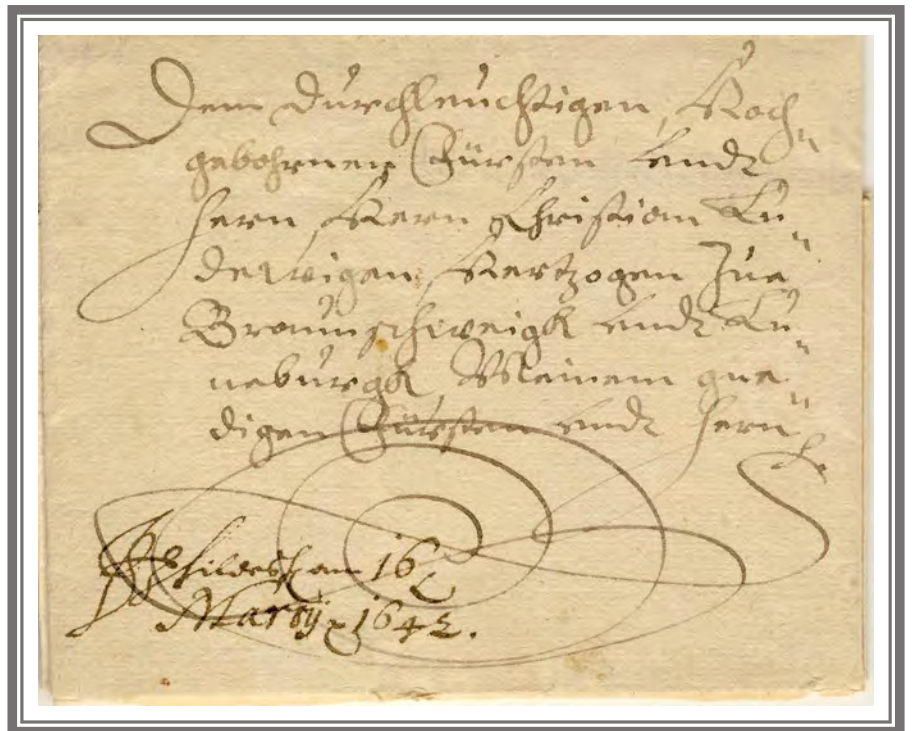 Dem Durchleuchtigen, Hoch„
gebohrnen Fürsten undt
Hern, Hern Christian Lu„
dewigen, Hertzogen Zue
Braunschweigk undt Lu„
neburgk, Meinem gne„
digen Fürsten undt Hern
Hildesh am 16
Martij 1642.